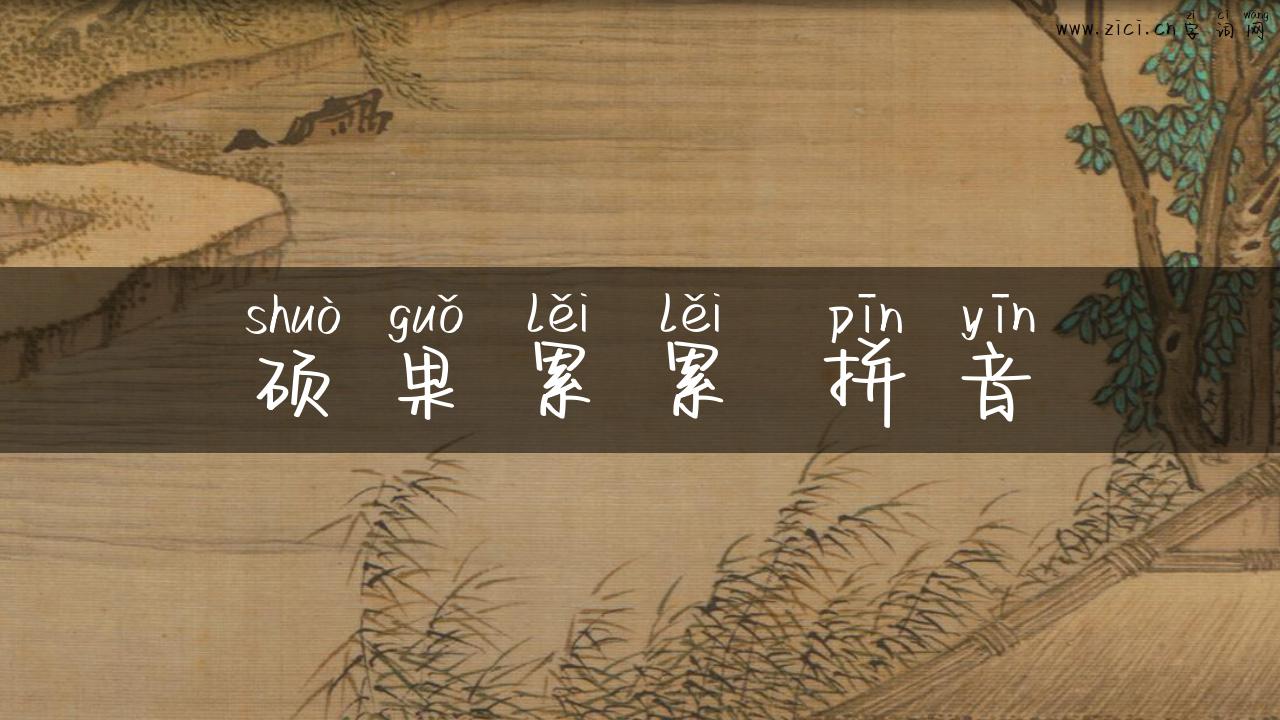 zì cí wǎng
www.zici.cn字词网
shuò guǒ lěi lěi pīn yīn
硕果累累 拼音